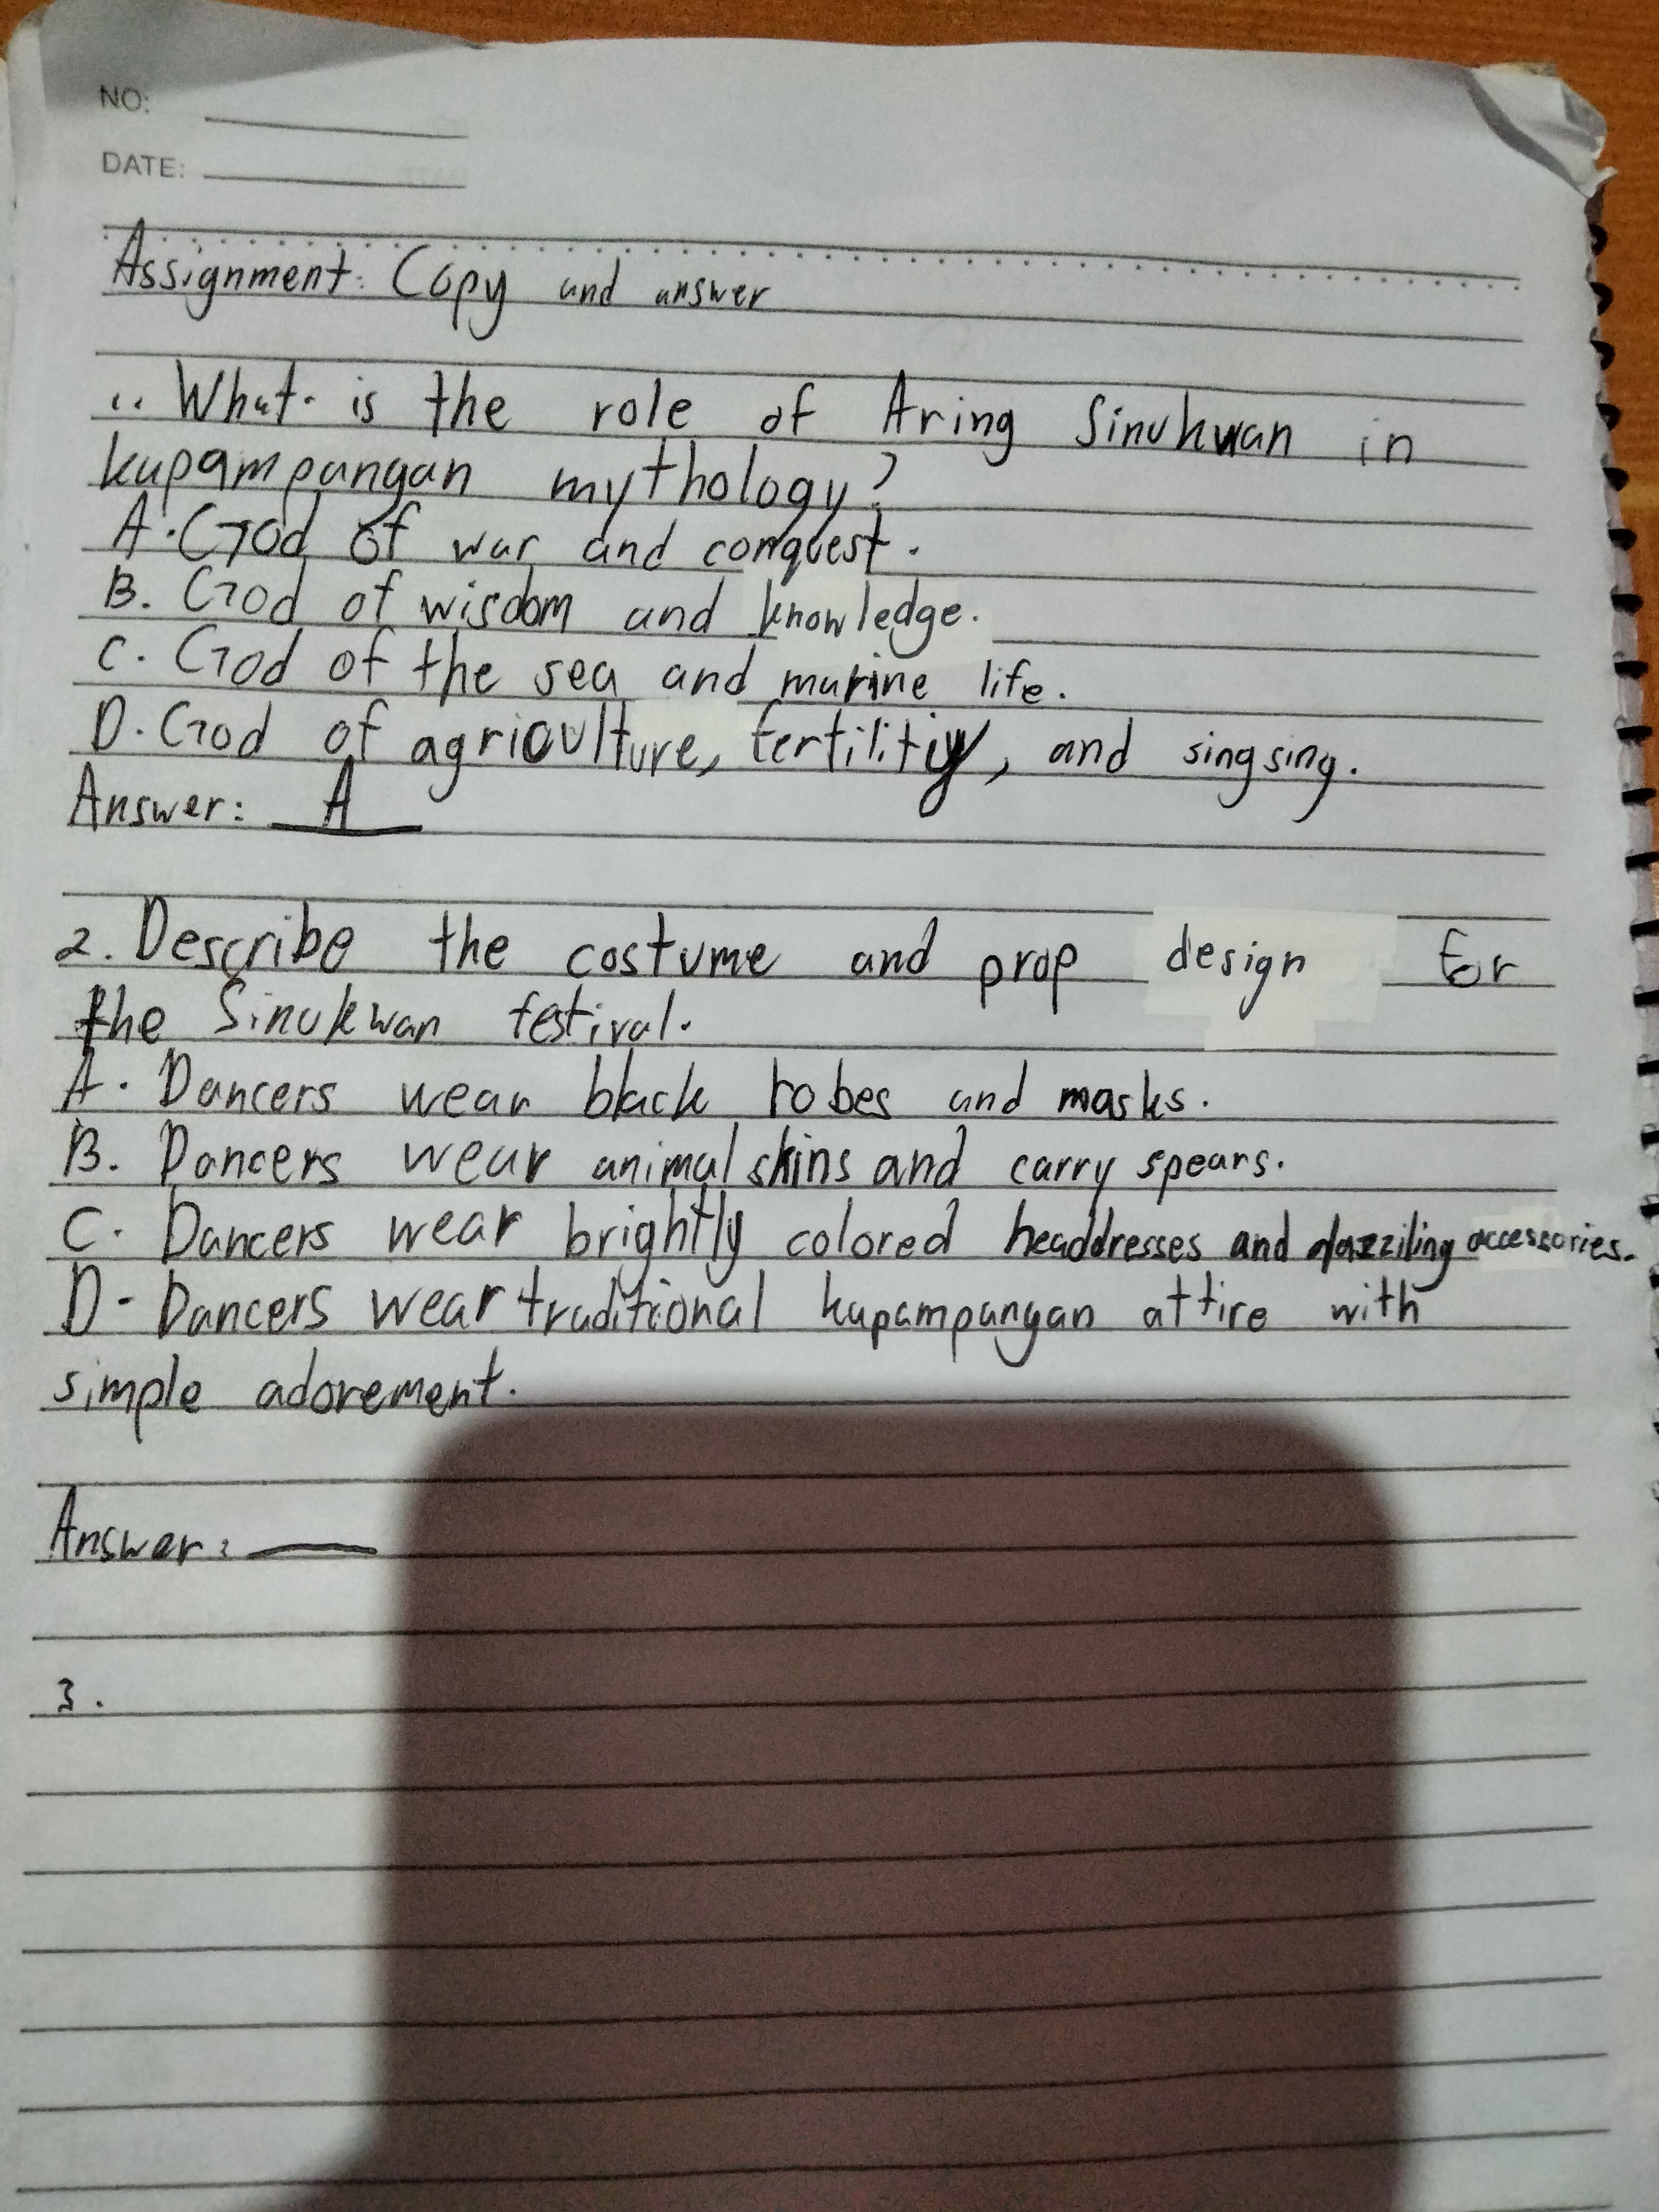 NO:
DATE:
Assignment: Copy and answer
1. What is the role of Aring Sinukwan in
kapampangan mythology?
A. God of war and conquest.
B. God of wisdom and knowledge.
C. God of the sea and marine life.
D. God of agriculture, fertilitiy, and singsing.
Answer: A
2. Describe the costume and prop design for
the Sinukwan festival.
A. Dancers wear black robes and masks.
B. Dancers wear animal skins and carry spears.
C. Dancers wear brightly colored headdresses and dazziling accessories.
D - Dancers wear traditional kapampangan attire with
simple adorement.
Answer:
3.